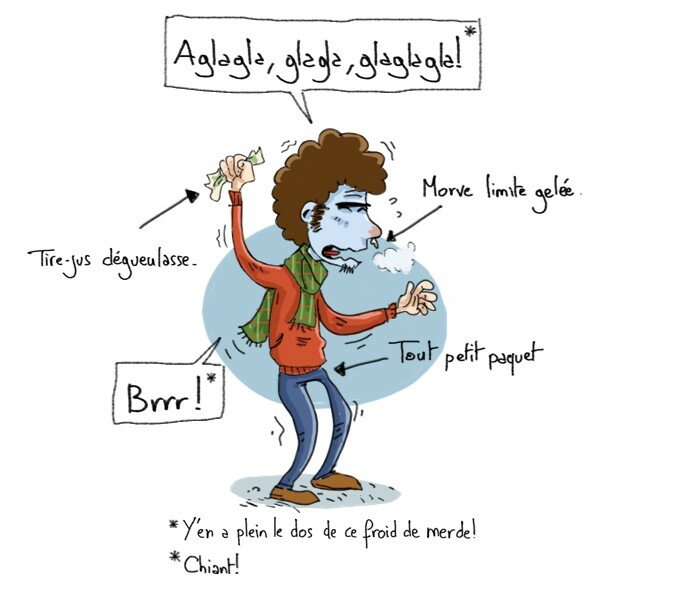 Aglagla, glagla, glaglagla!*
Morve limite gelée.
Tire-jus dégueulasse.
Tout petit paquet
Brrr!*
* Y'en a plein le dos de ce froid de merde!
* Chiant!